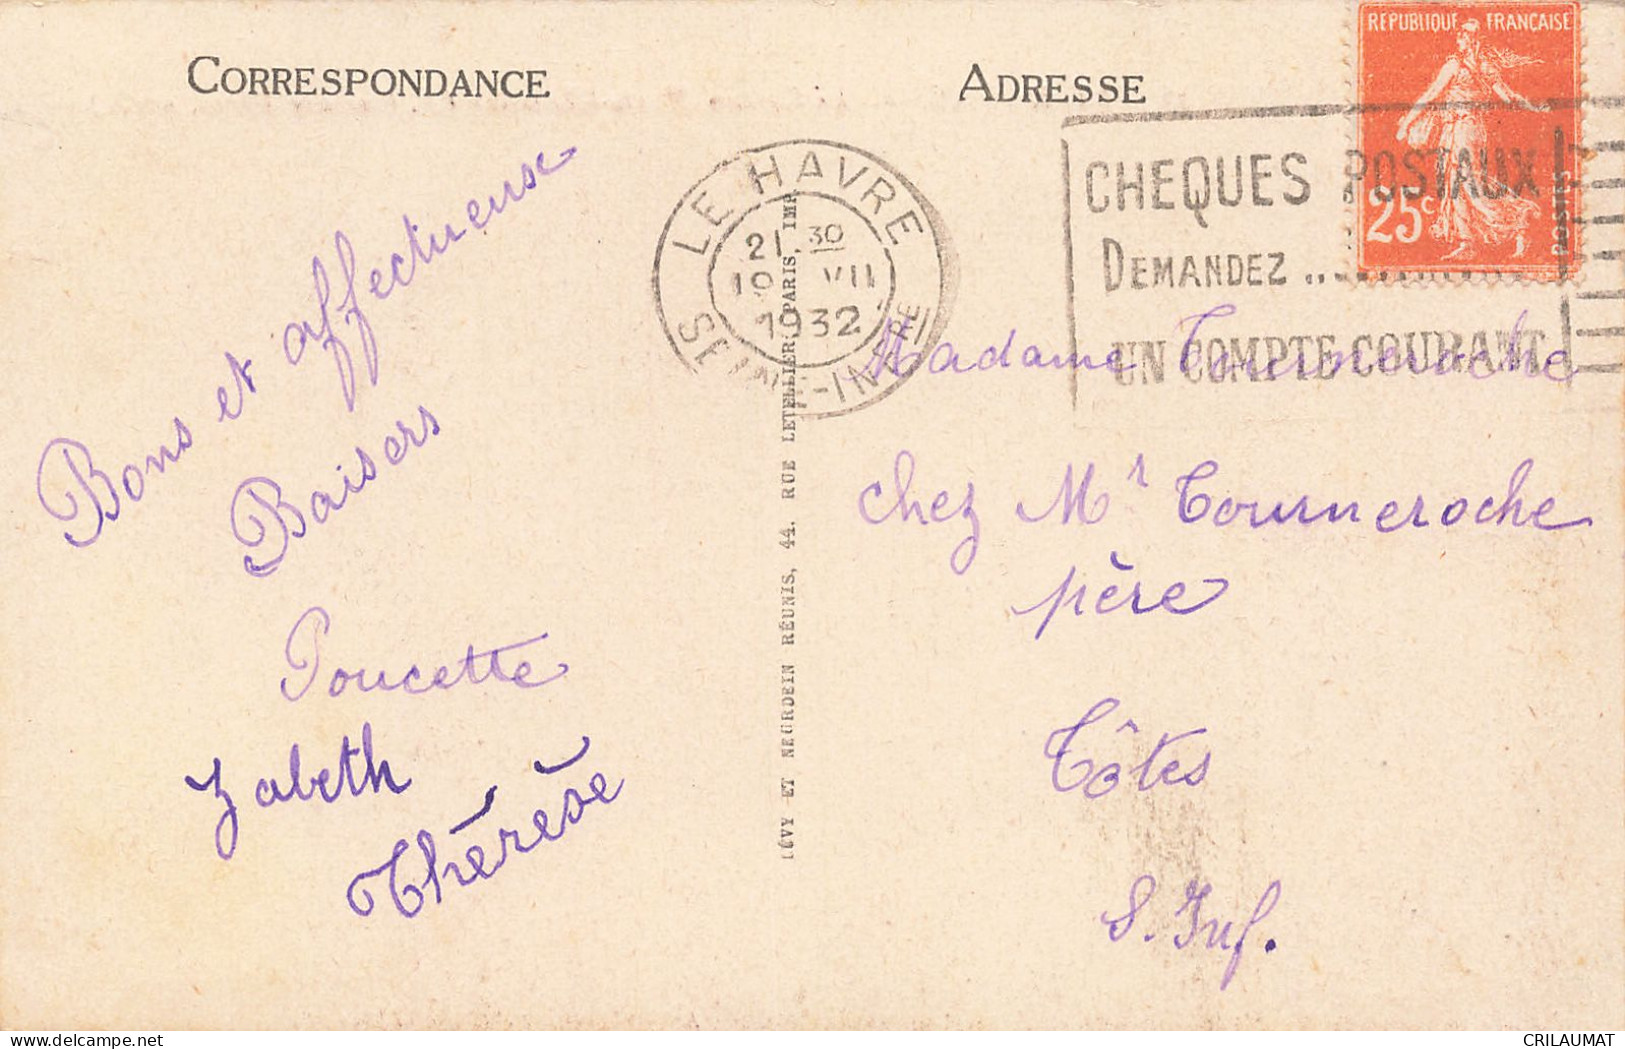 CORRESPONDANCE
Bons et affectueuse
Baisers
Poucette
Zabeth
Thérèse
LÉVY ET NEURDEIN RÉUNIS, 44, RUE LETELLIER, PARIS, IMP.
ADRESSE
REPUBLIQUE FRANÇAISE
25c
POSTES
LE HAVRE
21 30
19 VII
1932
SEINE-INFRE
CHEQUES POSTAUX
DEMANDEZ ..
UN COMPTE COURANT
Madame Tourneroche
chez Mr Tourneroche
père
Tôtes
S. Inf.
CRILAUMAT